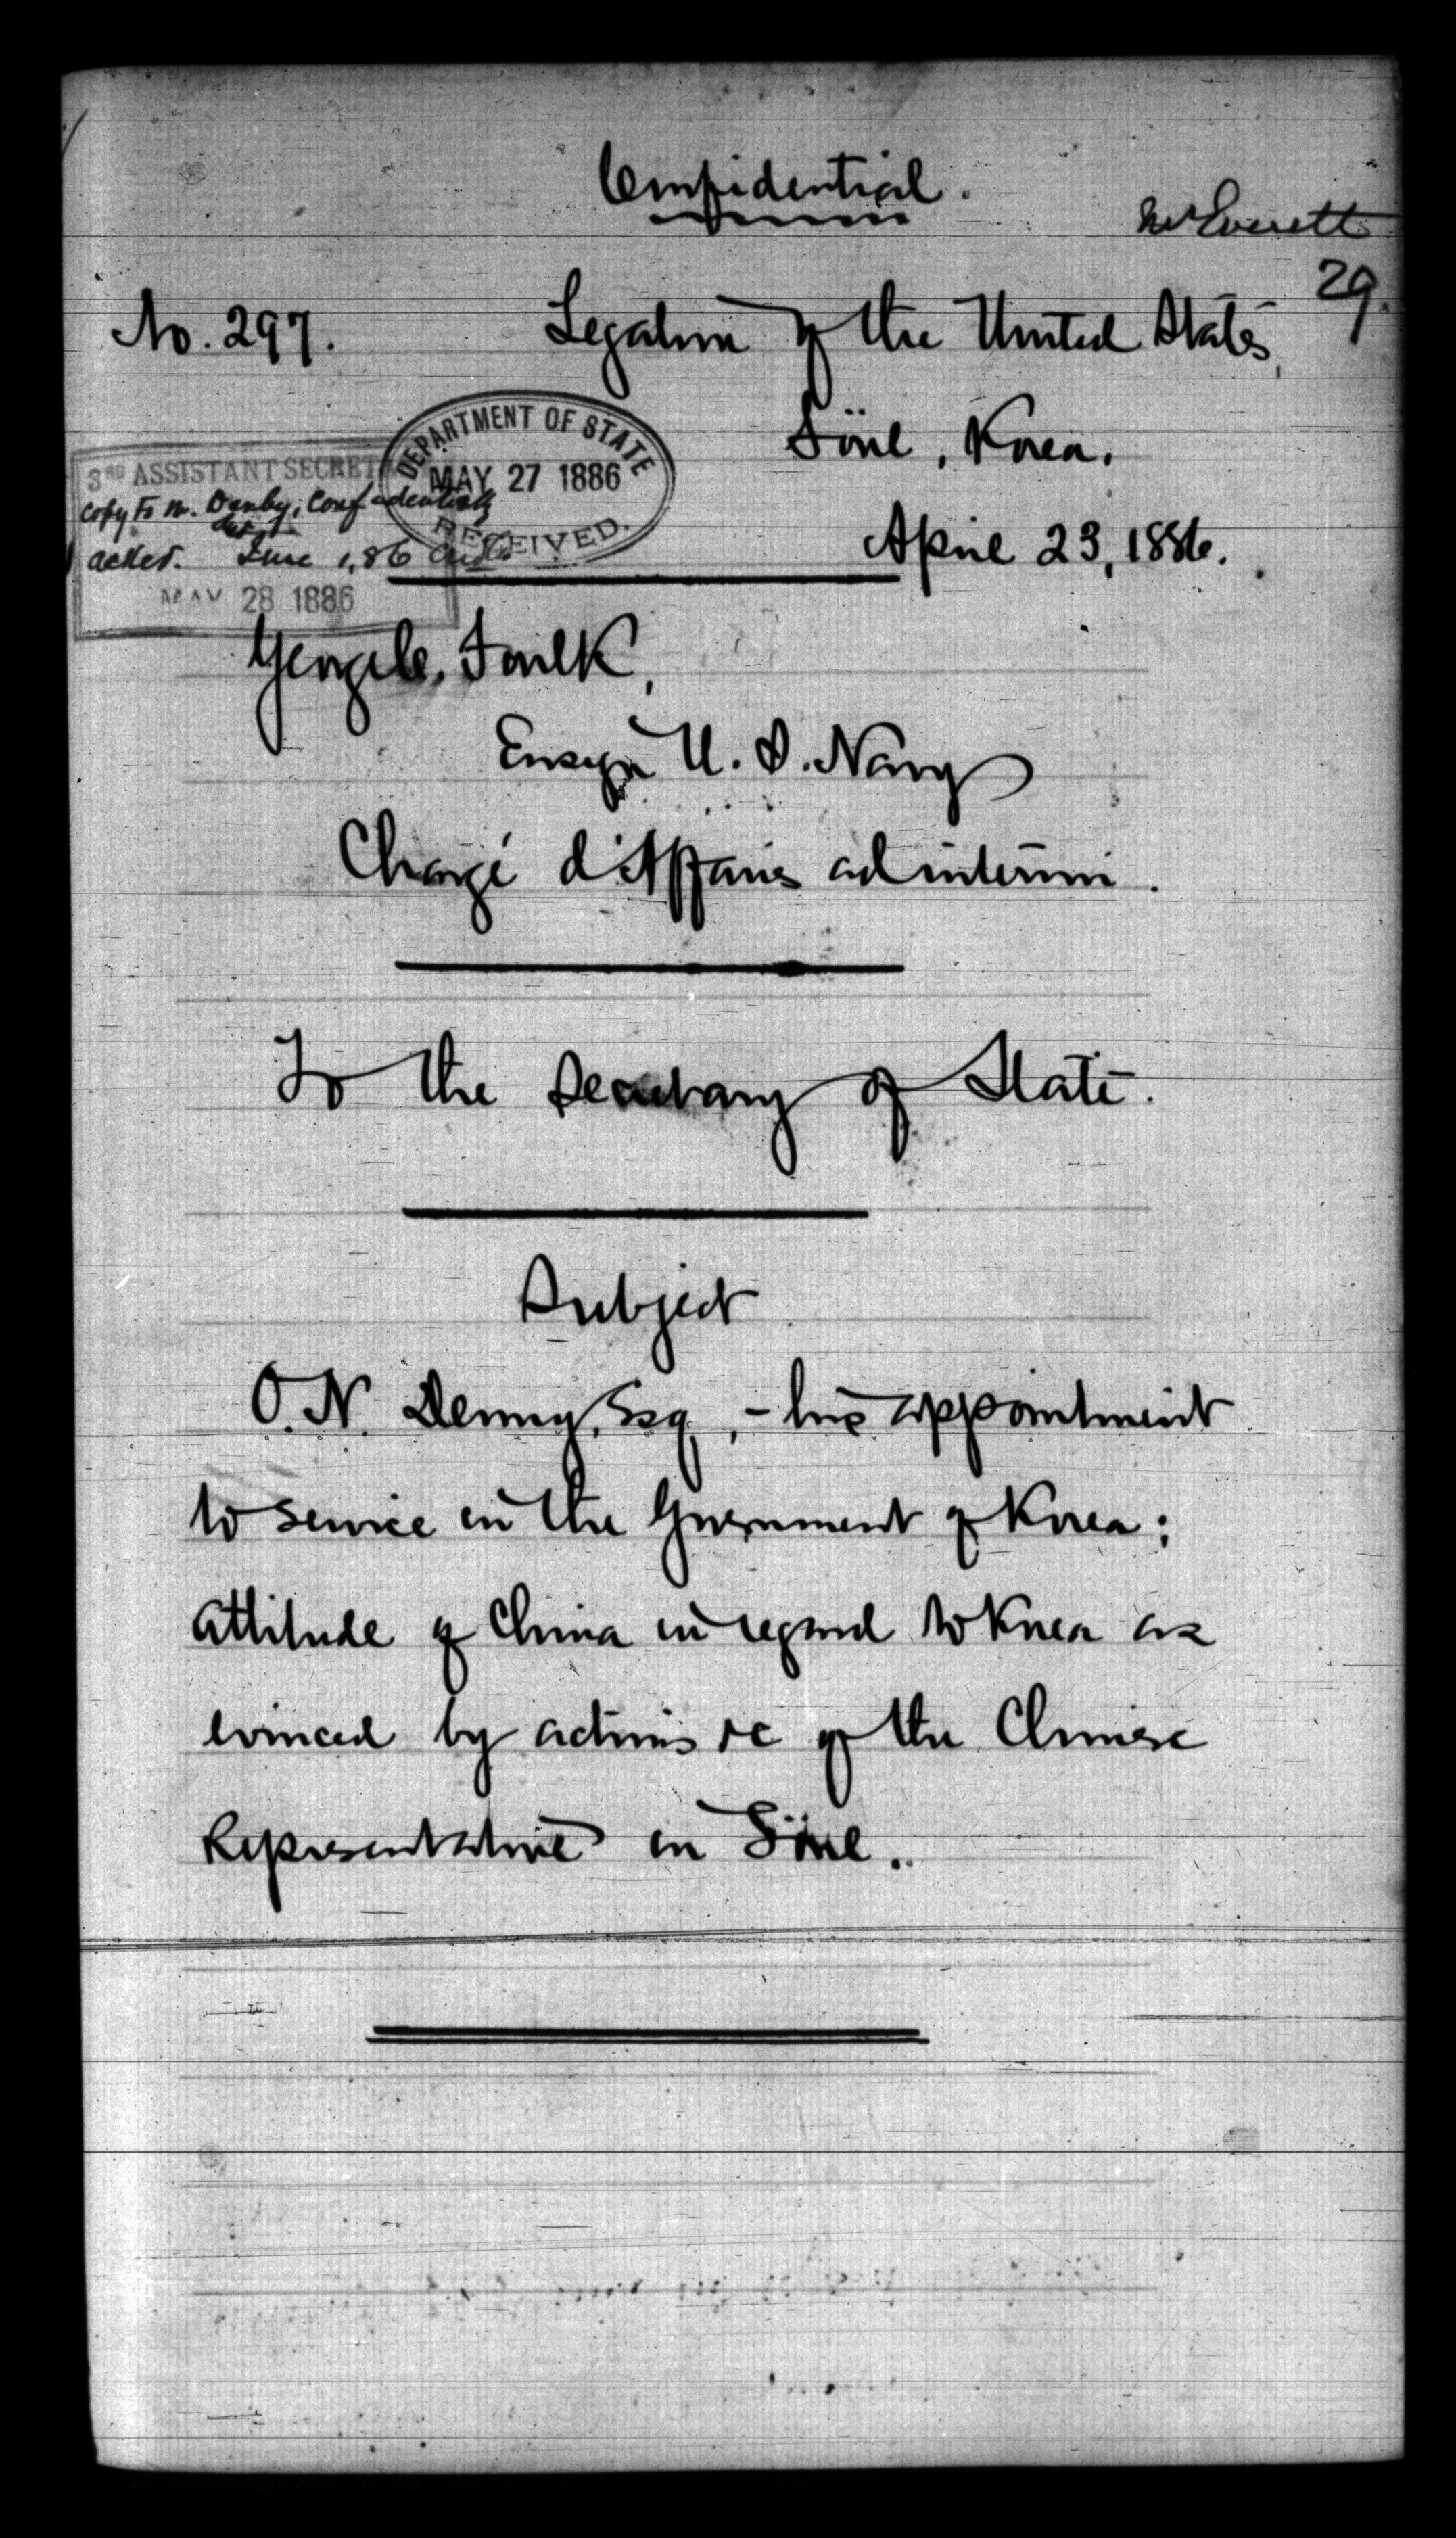 Confidential.
Mr Everett
29.
No. 297.
Legation of the United States,
Söul, Korea.
April 23, 1886.
DEPARTMENT OF STATE
MAY 27 1886
RECEIVED.
3RD ASSISTANT SECRET
Copy to Mr. Denby; Confidentially
acked. June 1, 86
MAY 28 1886
George C. Foulk,
Ensign U. S. Navy
Chargé d'Affaires ad interim.
To the Secretary of State.
Subject
O. N. Denny, Esq., - his appointment
to service in the Government of Korea;
attitude of China in regard to Korea as
evinced by actions &c of the Chinese
Representative in Söul.